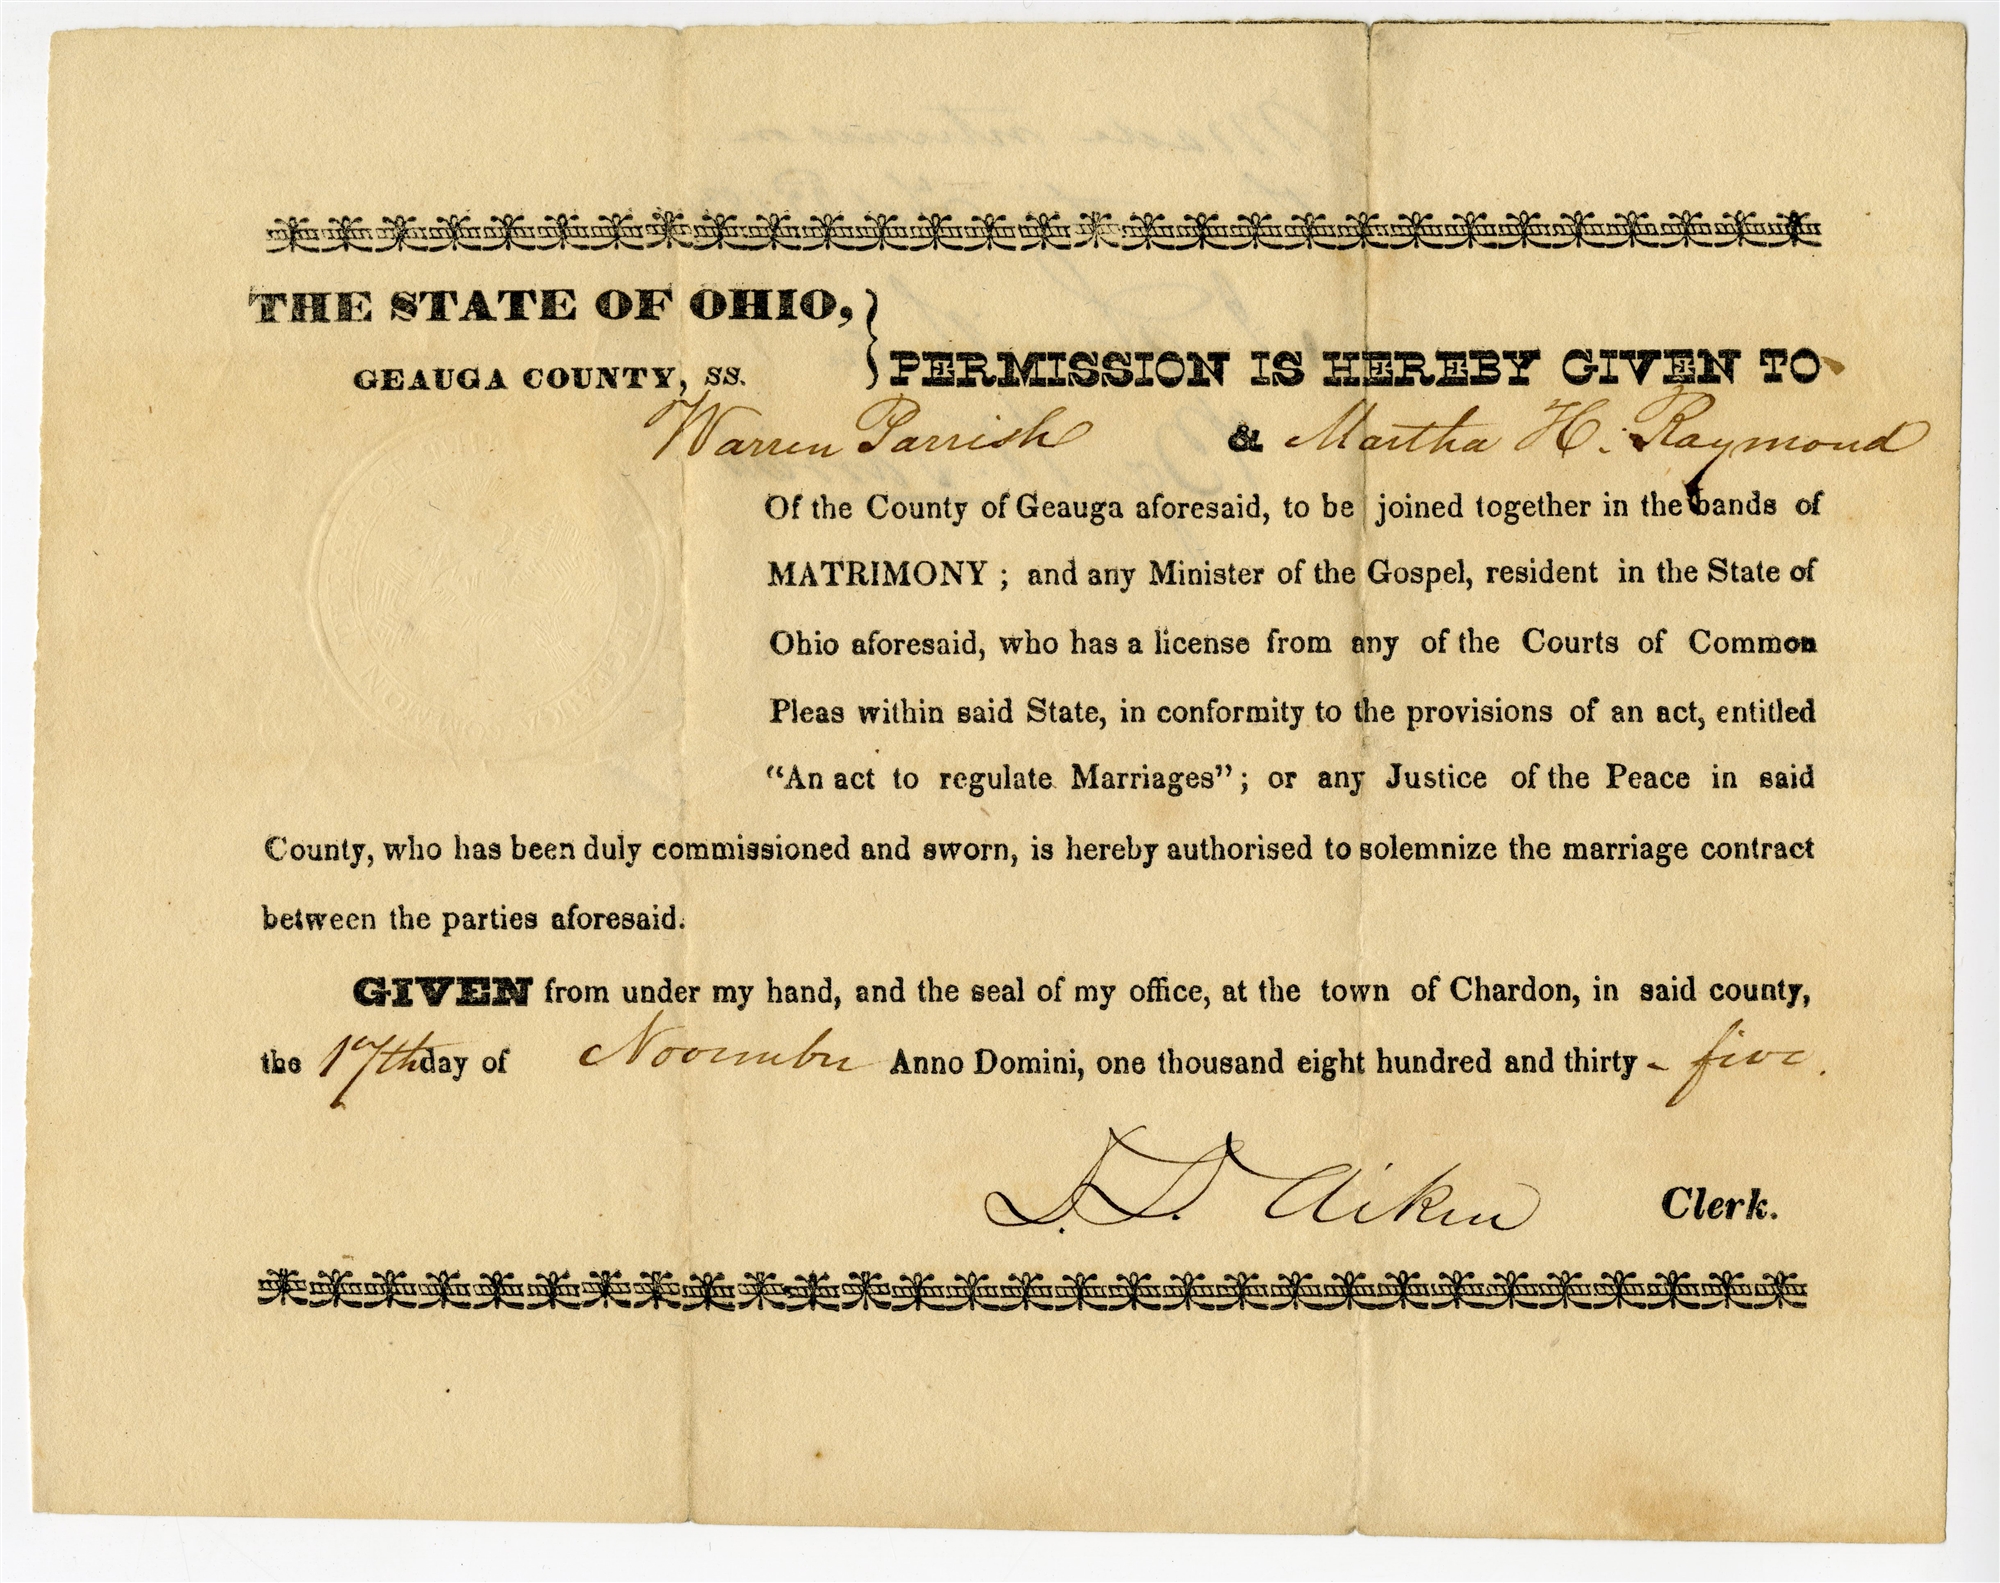 THE STATE OF OHIO,
GEAUGA COUNTY, SS.
PERMISSION IS HEREBY GIVEN TO
Warren Parrish & Martha H. Raymond
Of the County of Geauga aforesaid, to be joined together in the bands of
MATRIMONY ; and any Minister of the Gospel, resident in the State of
Ohio aforesaid, who has a license from any of the Courts of Common
Pleas within said State, in conformity to the provisions of an act, entitled
"An act to regulate Marriages" ; or any Justice of the Peace in said
County, who has been duly commissioned and sworn, is hereby authorised to solemnize the marriage contract
between the parties aforesaid.
GIVEN from under my hand, and the seal of my office, at the town of Chardon, in said county,
the 17th day of November Anno Domini, one thousand eight hundred and thirty - five.
D. D. Aiken Clerk.